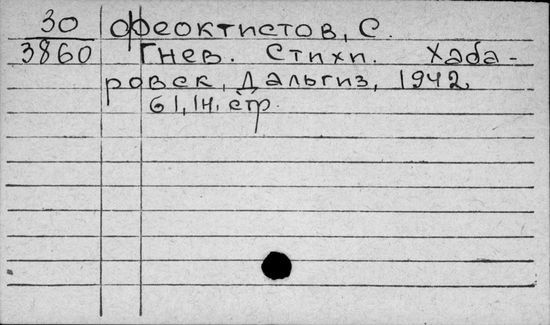 30 Феоктистов, С.
3860 Гнев. Стихи. Хаба-
ровск, Дальгиз, 1942.
61, 1н. стр.